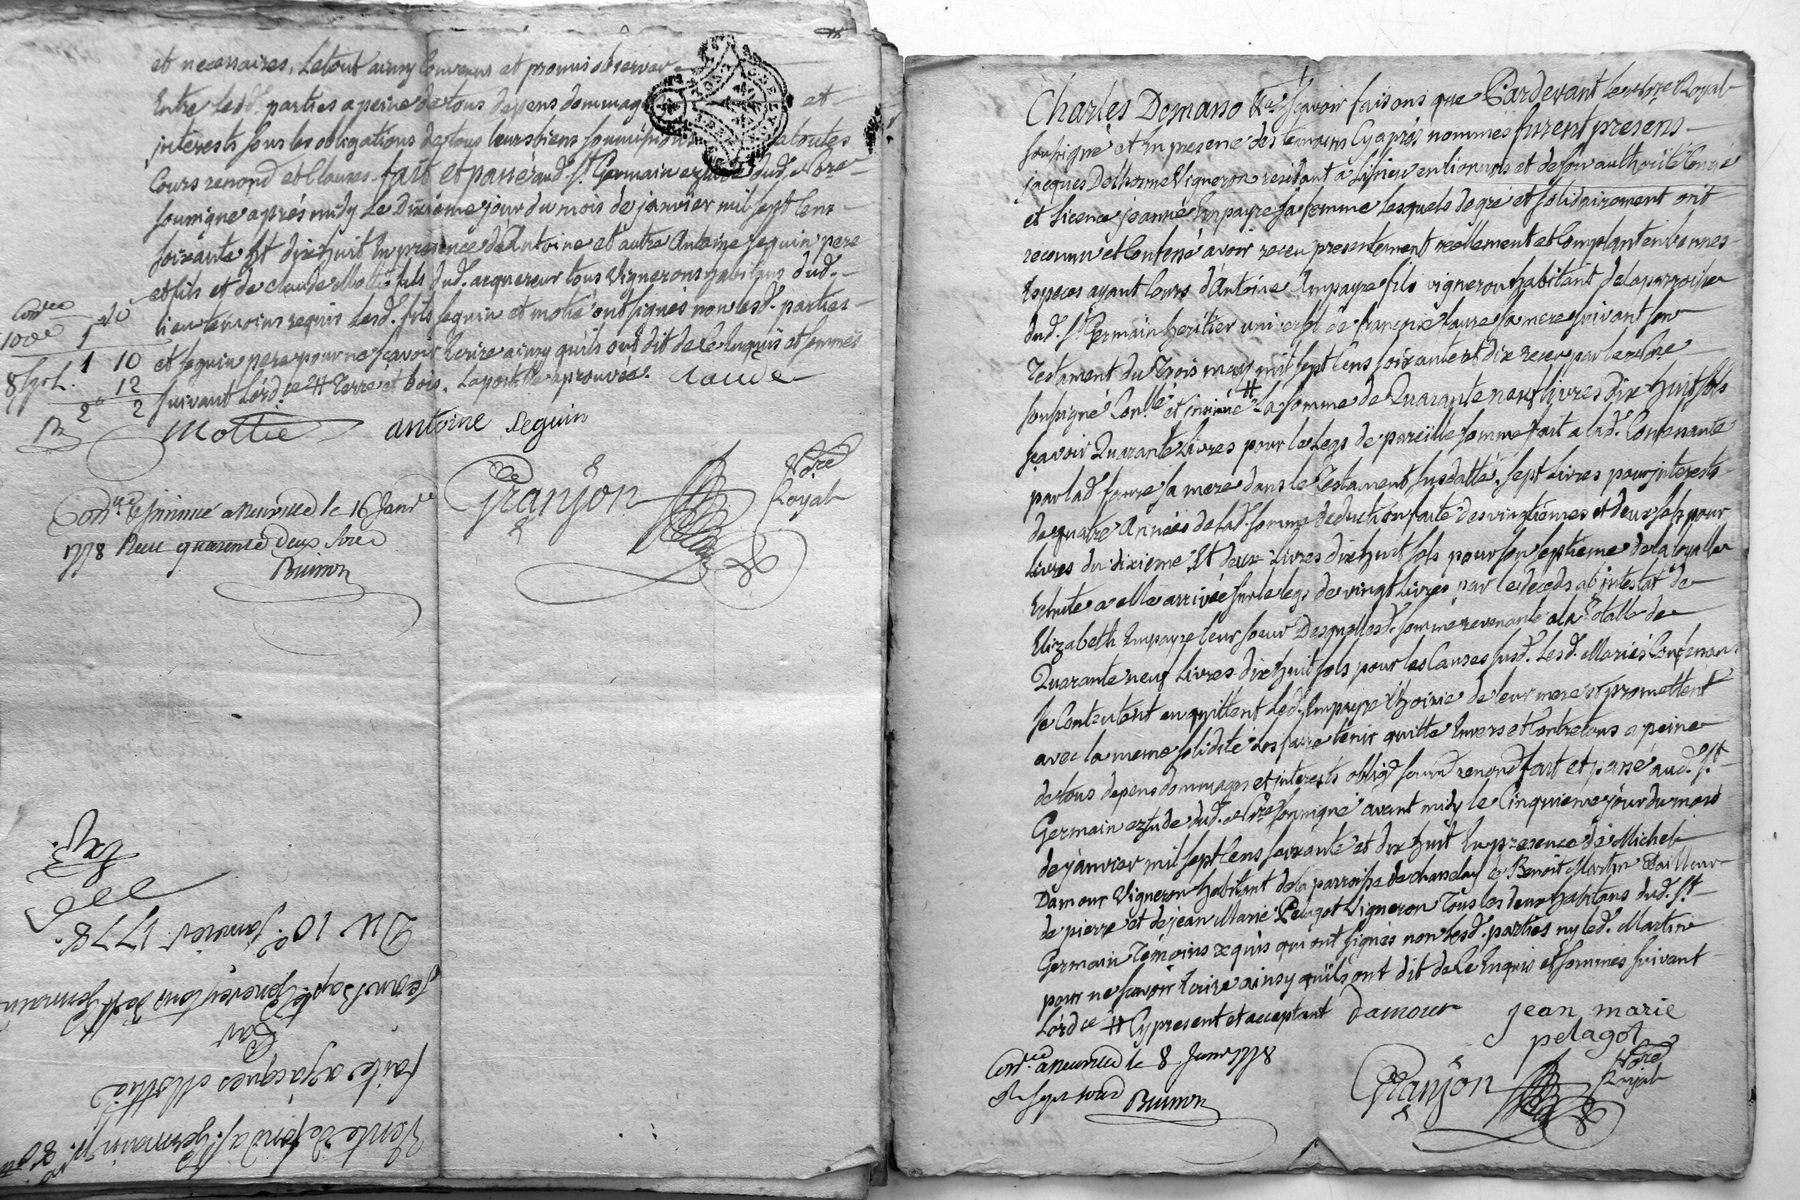 et necessaires. Le tout ainsy Convenus et promis observer
Entre lesd. parties a peine de tous depens dommag et
interests sous les obligations de tous leurs biens soumissions a toutes
Cours renond et Clauses. fait et passé aud. St. Germain etude dud. Nore
soussigné aprés midy Le Dixieme jour du mois de janvier mil sept Cens
soixante Et dix huit En presence de Antoine et autre Antoine seguin pere
et fils et de claude Mottié fils dud. acquereur tous Vignerons habitans dud.
lieu temoins requis Lesd. fils seguin et motié ont signés non lesd. parties
et seguin pere pour ne sçavoir Ecrire ainsy qu'ils ont dit de Ce Enquis et sommés
suivant L'ord.ce # Terre et bois. Lapostille aprouvée. claude
1 10
12
2 2
Mottié antoine seguin
Granjon Nore Royal
Con.lé et insinué a neuville le 16 Janv
1778 Receu quarente deux sols
Vente de fond a St. Germain
faite a jacques Mottié
Par
jean Bap.te de St Germain
Du 10e. janvier 1778.
Exp.
Charles Domano &a sçavoir faisons que Pardevant Le Nore Royal
soussigné et En presence des temoins Cy aprés nommés furent presens
jacques Delhorme Vigneron residant a Lissieu en lionnois et de son authorité Congé
et Licence jeanne Empayre sa femme Lesquels de gré et solidairement ont
reconnu et Confessé avoir receu presentement réellement et Comptant en bonnes
Especes ayant Cours d'Antoine Empayre fils vigneron habitant de la parroisse
dud. St. Germain heritier universel de françoise faure sa mere suivant son
Testament du Trois may mil sept Cens soixante et dix receu par le Nore
soussigné Con.llé et insinué # La somme de Quarante neuf livres Dix huit sols
sçavoir Quarante Livres pour Le Legs de pareille somme fait a lad. Confessante
par lad. faure sa mere dans le Testament susdatté. sept Livres pour interests
de quatre Années de lad. somme deduction faite des vingtiémes et deux sols pour
Livres du dixieme Et deux Livres dix huit sols pour son septieme de la
Echute a elle arrivée sur le legs de vingt Livres par le deceds abintestat de
Elizabeth Empayre leur soeur Desquelles d. somme revenante a la Totalle de
Quarante neuf Livres dix huit sols pour les Causes susd. Lesd. Mariés Confessans
se Contentent en quittent Led. Empayre L'hoirie de leur mere et promettent
avec la meme solidité Les faire tenir quitte Envers et Contre tous a peine
de tous depens dommages et interests oblig.d soum.d renond. fait et passé aud. St.
Germain etude dud. Nore soussigné avant midy Le Cinquieme jour du mois
de janvier mil sept Cens soixante et dix huit En presence de Michel
Damour Vigneron habitant de la parroisse de chasselay de Benoit Martin Tailleur
de pierre et de jean Marie Pelagot Vigneron Tous les deux habitans dud. St.
Germain Témoins requis qui ont signés non lesd. parties ny led. Martin
pour ne sçavoir Ecrire ainsy qu'ils ont dit de Ce Enquis et sommés suivant
L'ord.ce # Cy present et acceptant Damour jean marie
pelagot
Con.lé a Neuville le 8 Janv 1778
R. sept sols
Granjon Nore Royal